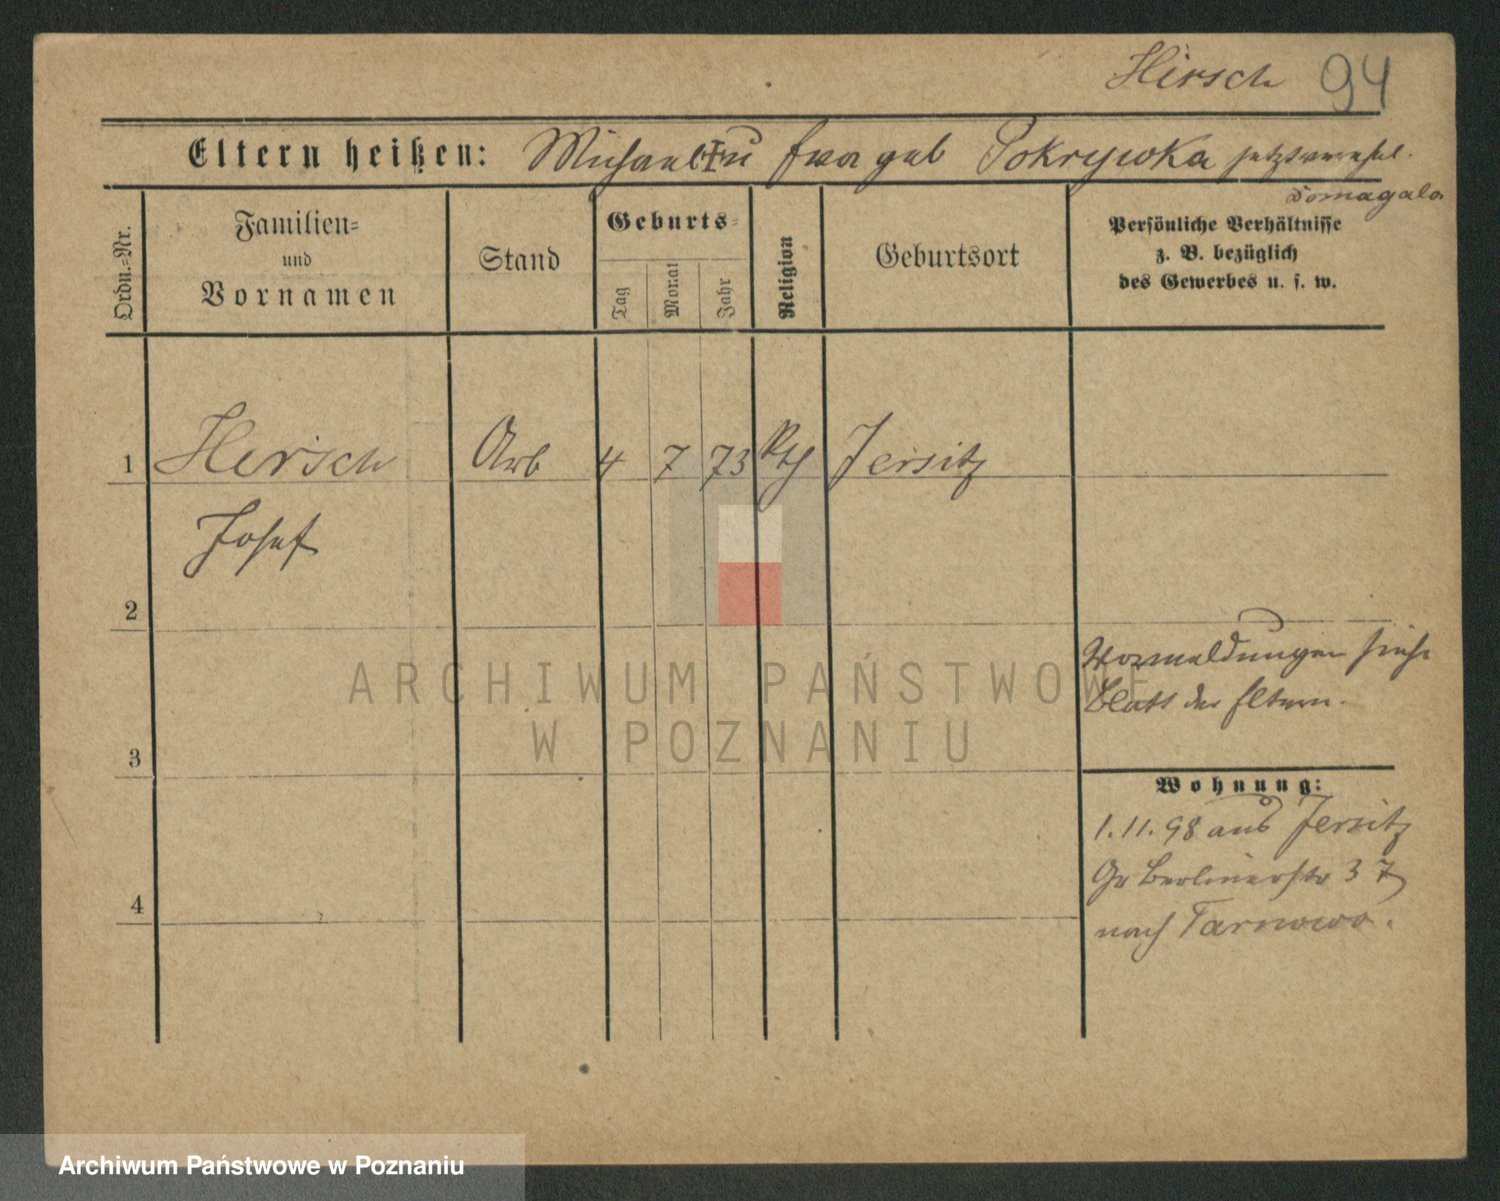 Hirsch 94
Eltern heißen: Michael † u Eva geb Pokrywka jetzt verehel.
Domagala
Ordn.-Nr.
Familien-
und
Vornamen
Stand
Geburts-
Tag
Monat
Jahr
Religion
Geburtsort
Persönliche Verhältnisse
z. B. bezüglich
des Gewerbes u. s. w.
1 Hirsch Arb 4 7 73 Jersitz
Josef
2
Vormeldungen siehe
Blatt der Eltern.
ARCHIWUM PAŃSTWOWE
W POZNANIU
3
Wohnung:
1.11.98 aus Jersitz
Gr Berlinerstr 37
4
nach Tarnowo.
Archiwum Państwowe w Poznaniu